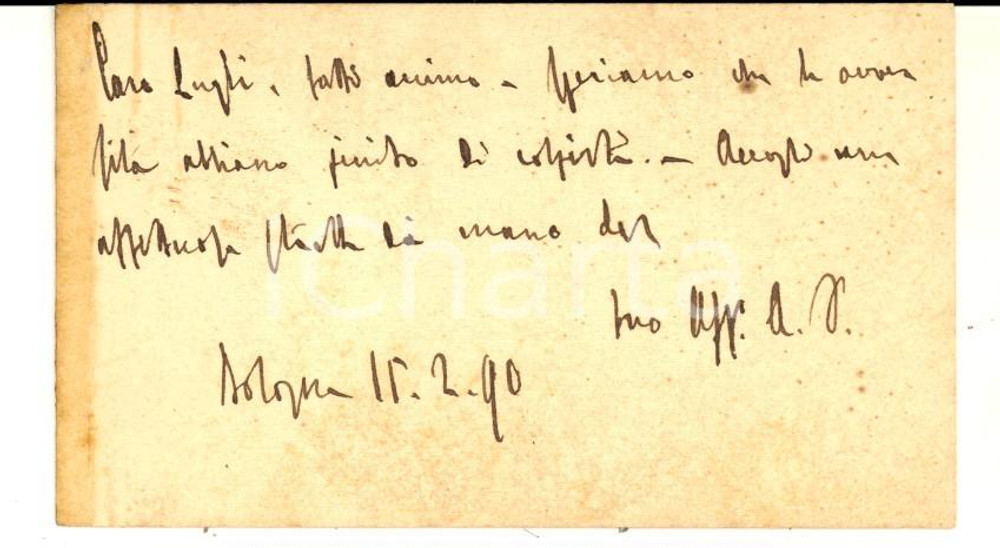 Caro Lugli, fatti animo – Speriamo che le avver
sità abbiano finito di colpirti. – Accogli una
affettuosa stretta di mano del
tuo Aff. A. S.
Bologna 15. 2. 90
iCharta